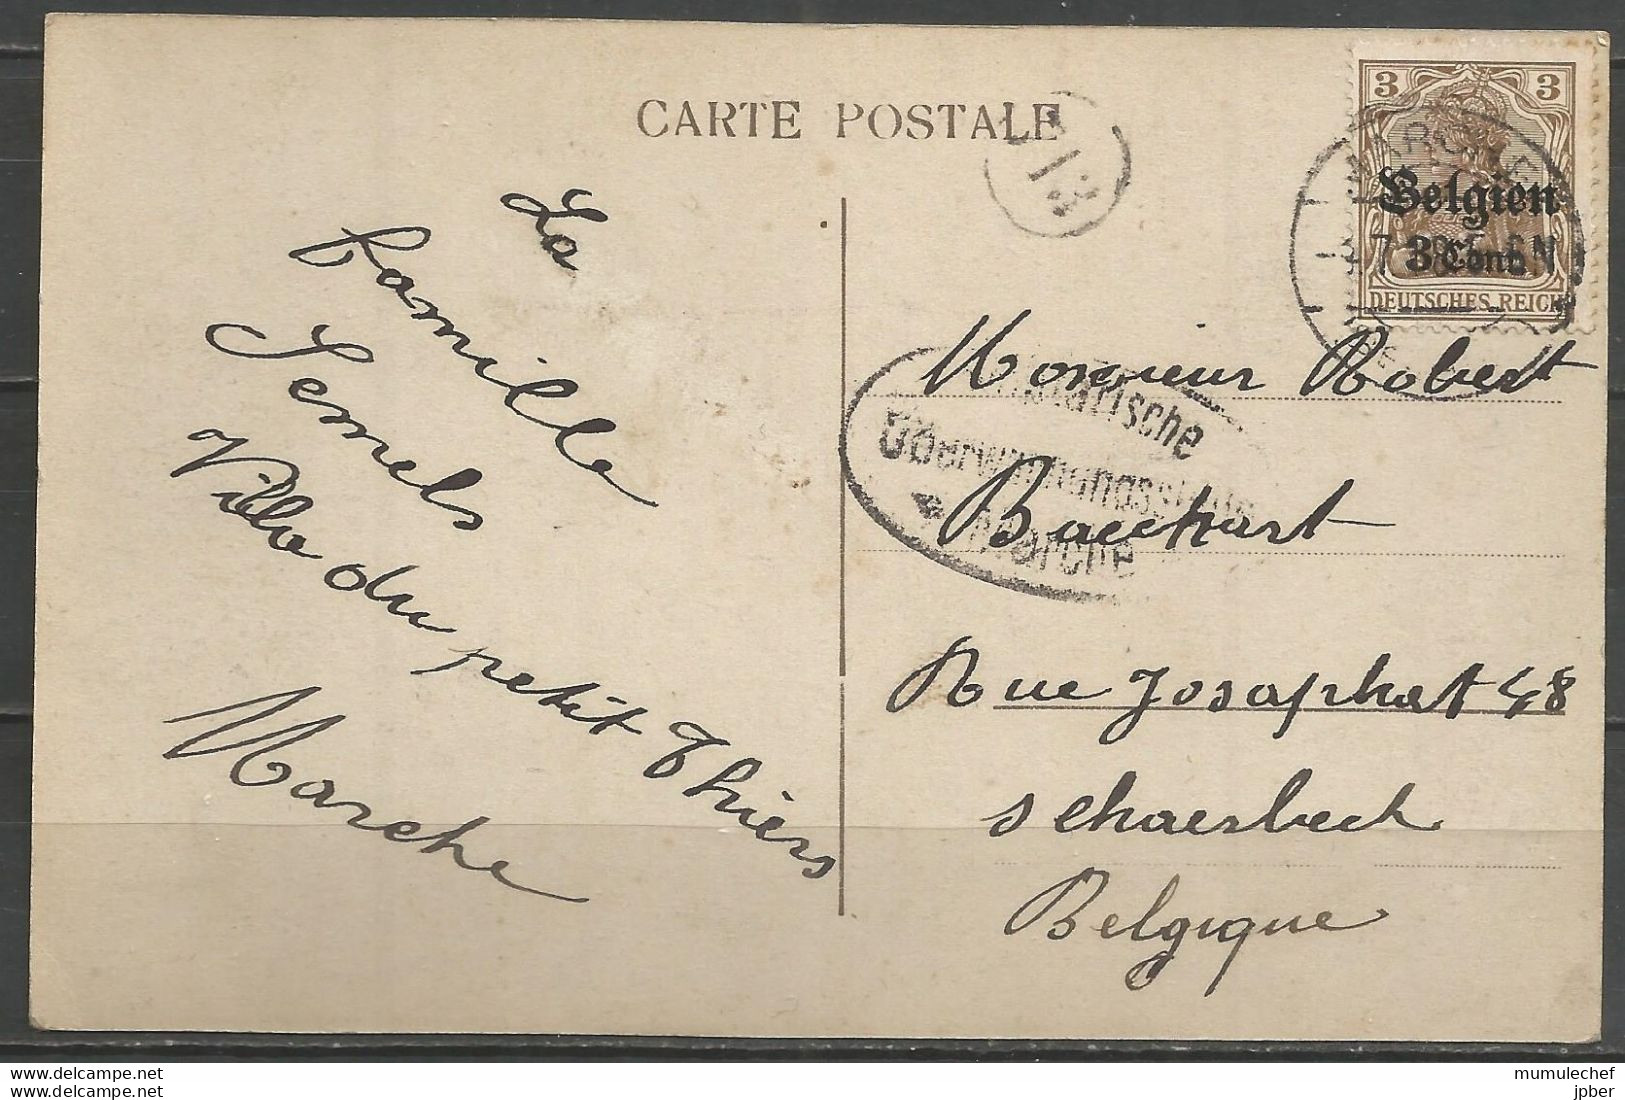 CARTE POSTALE
La
famille
Semels
Ville du petit Thiers
Marche
3 3
MARCHE
Belgien
3 Cent.
DEUTSCHES REICH
Monsieur Robert
Überwachungsstelle
Marche
Baeckart
Rue Josaphat 48
schaerbeck
Belgique
delcampe.net
delcampe.net
mumulechef
jpber